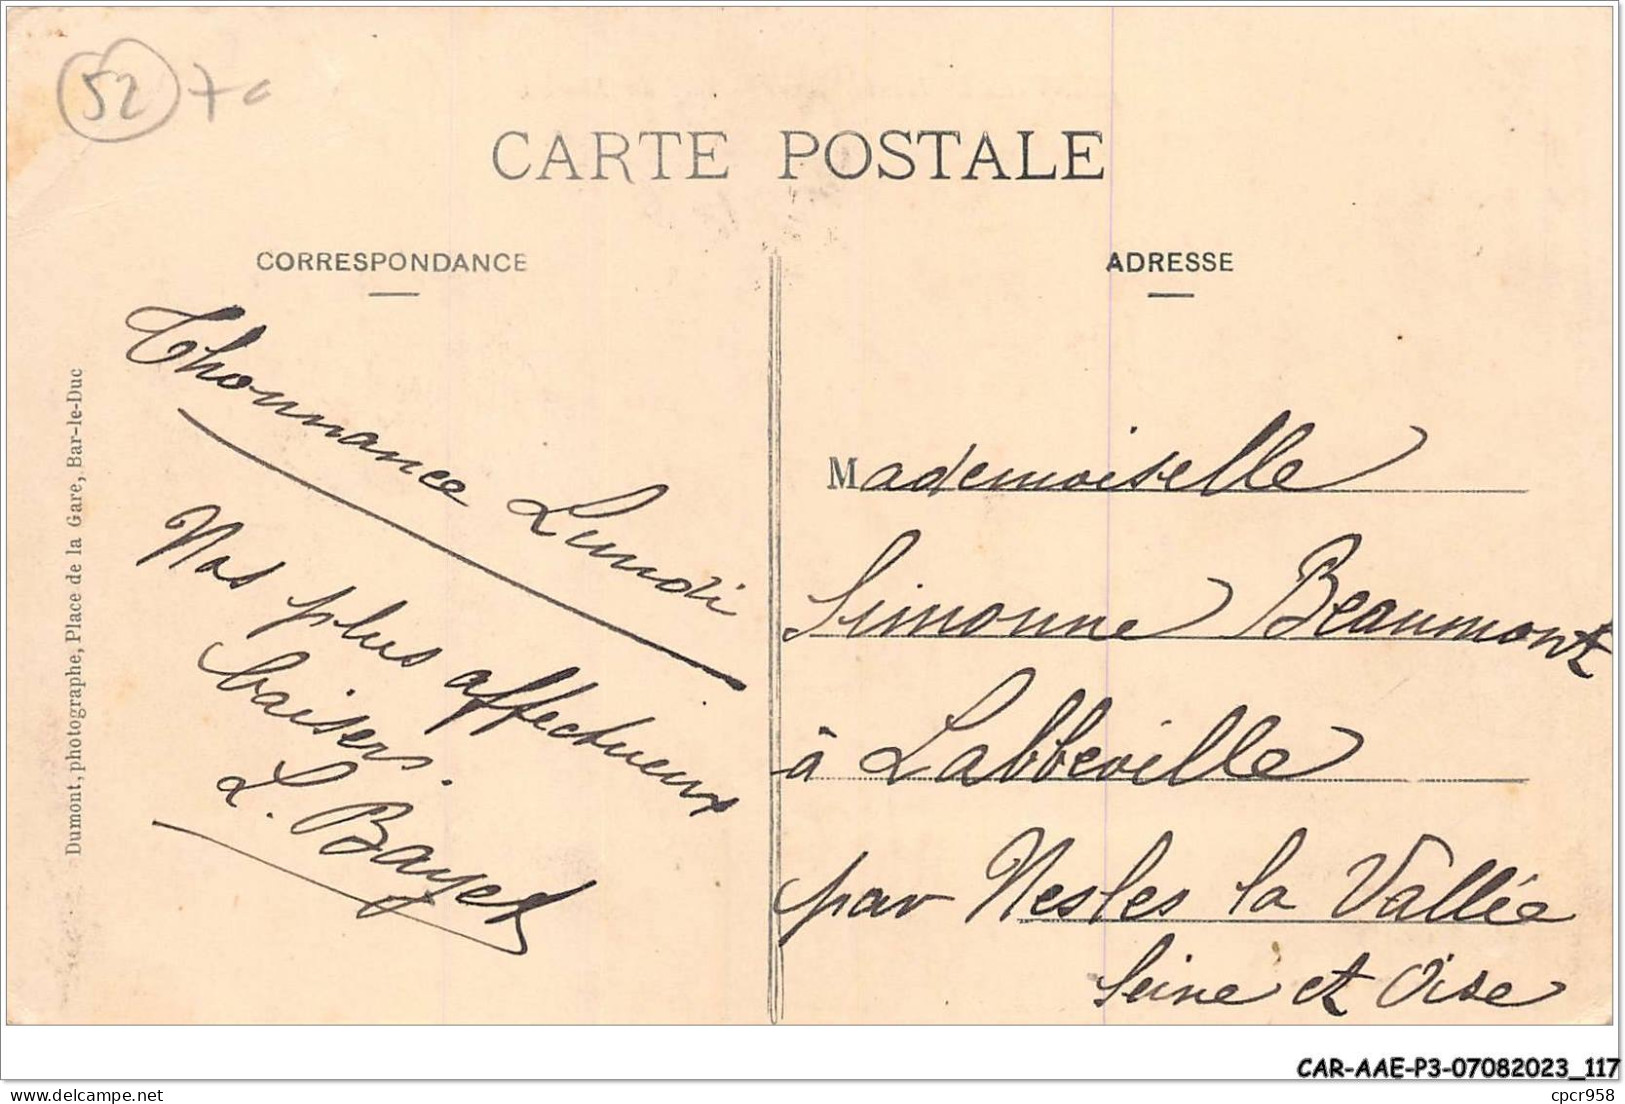 52 70
CARTE POSTALE
CORRESPONDANCE
ADRESSE
Thonnance Lundi
Nos plus affectueux
baisers.
L. Bayet
Mademoiselle
Simonne Beaumont
à Labbeville
par Nesles la Vallée
Seine et Oise
Dumont, photographe, Place de la Gare, Bar-le-Duc
CAR-AAE-P3-07082023_117
delcampe.net
cpcr958